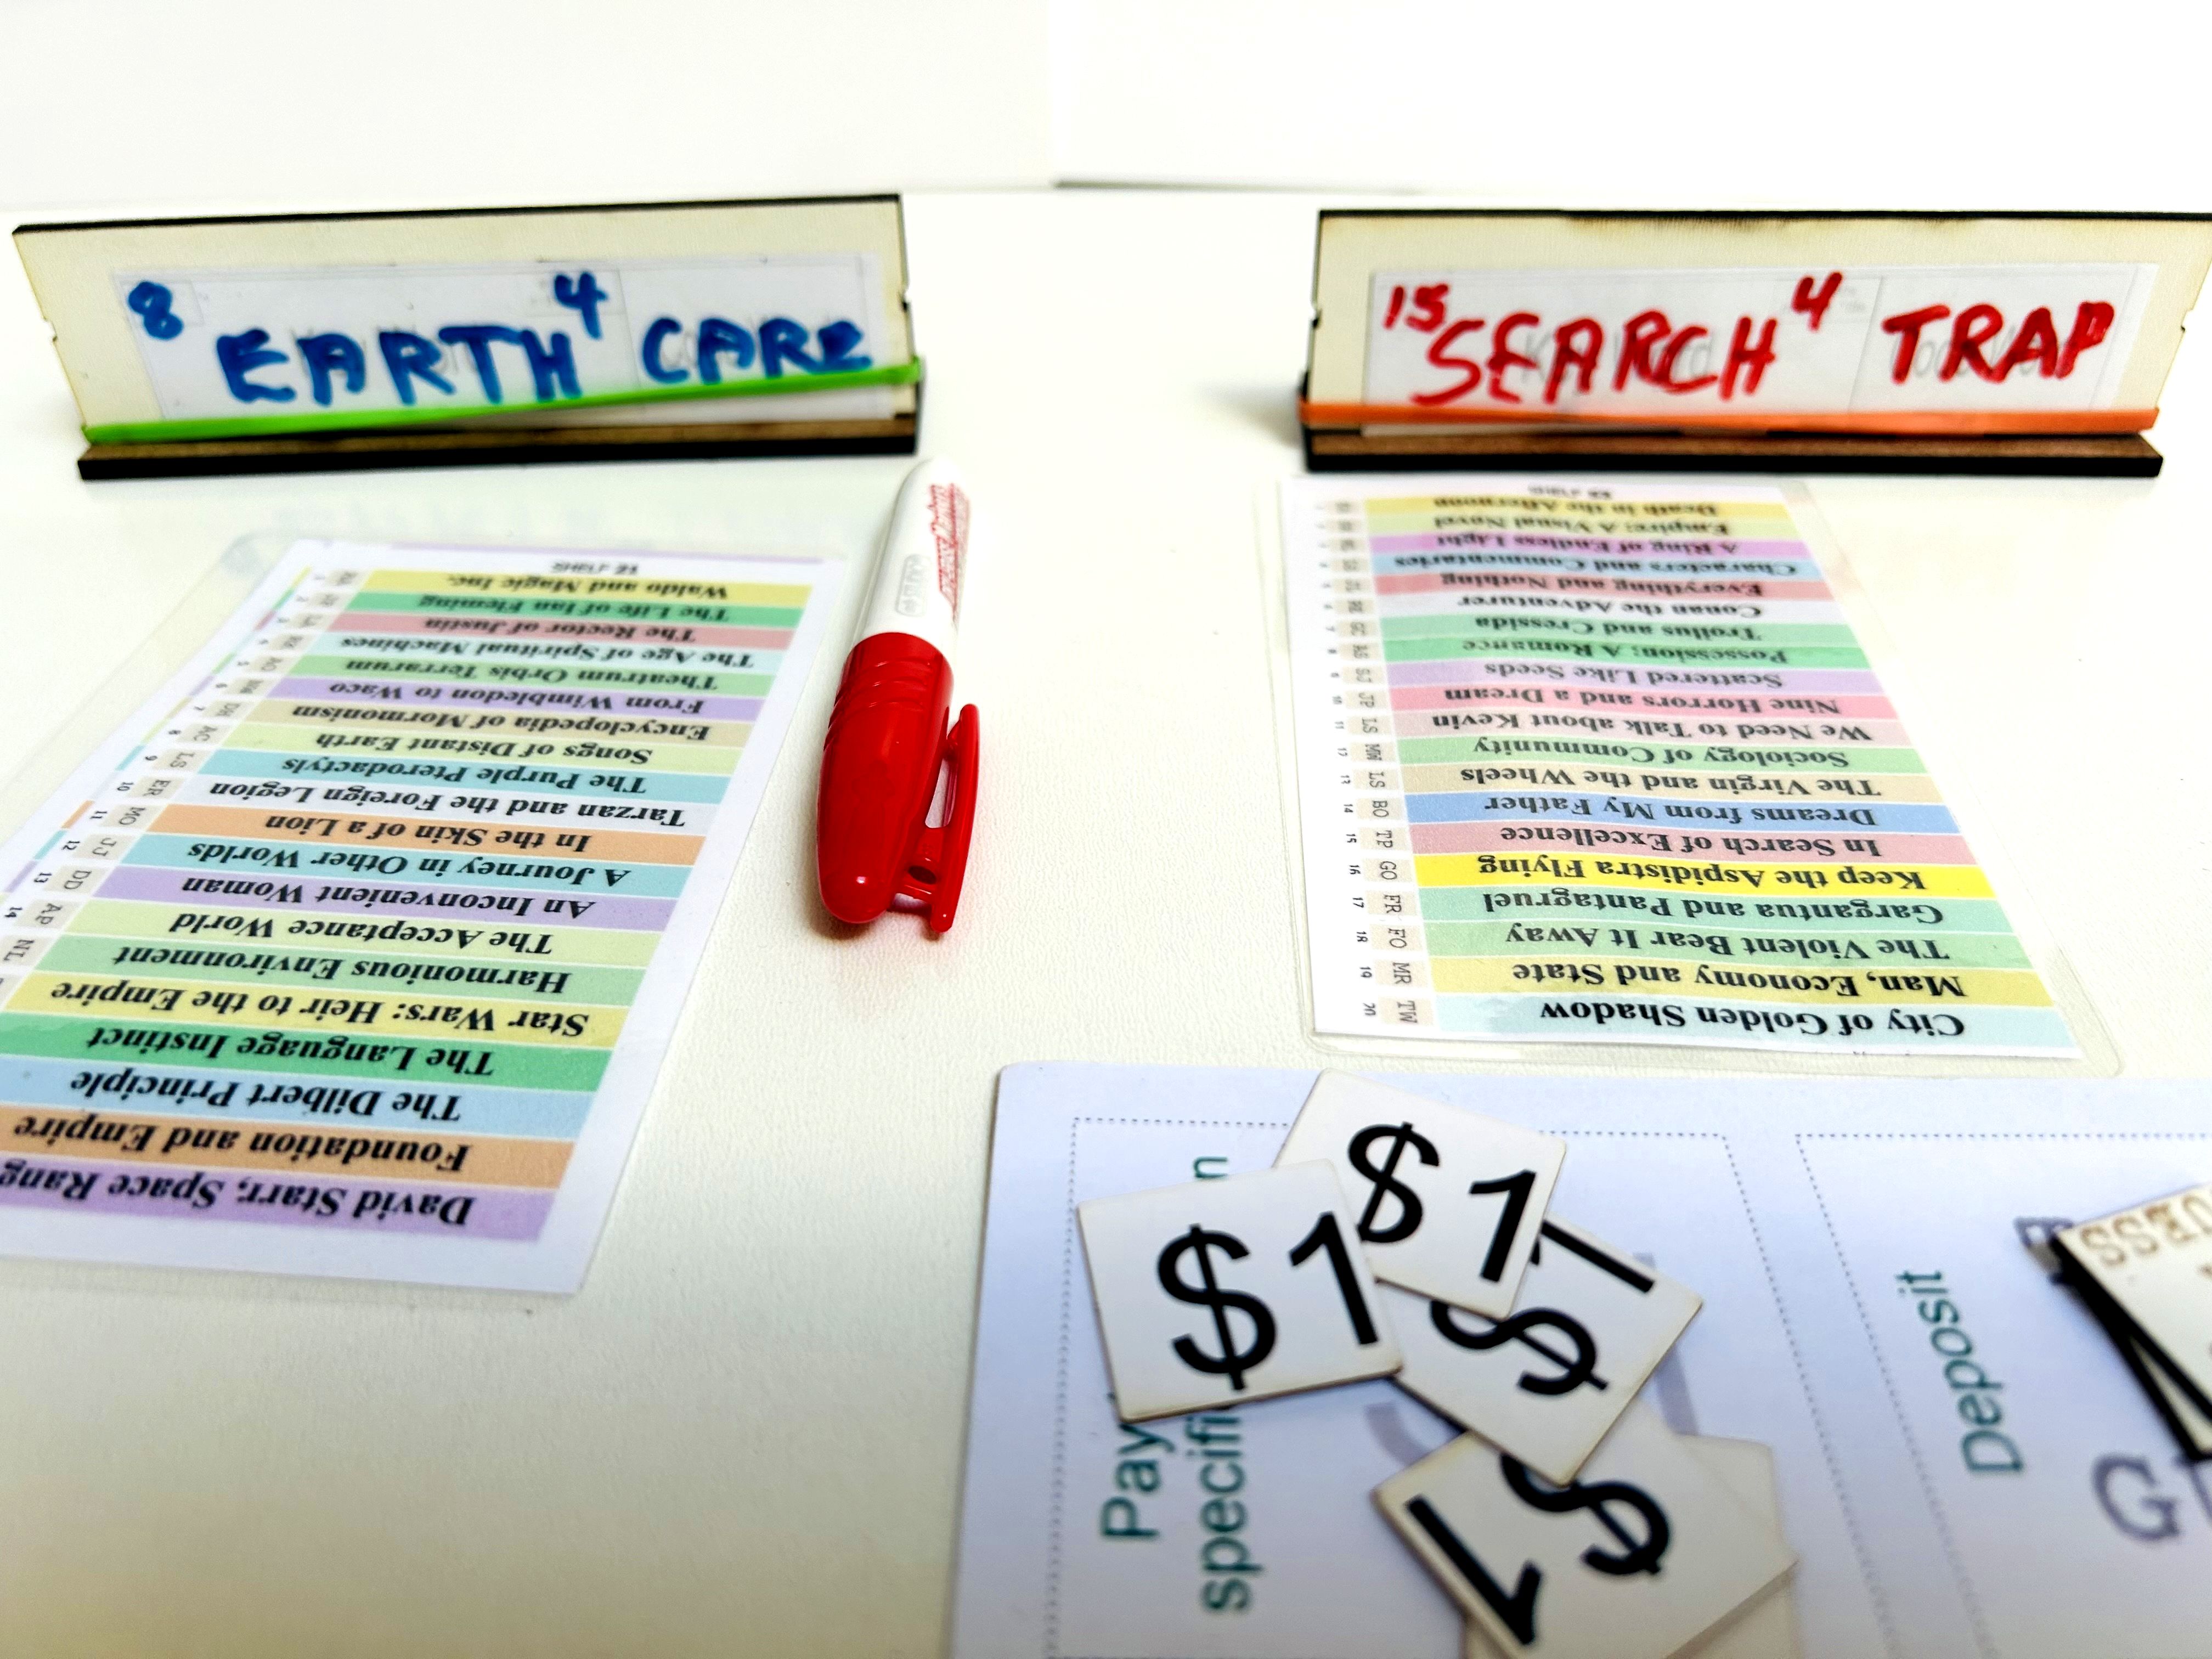 8 EARTH 4 CARE
15 SEARCH 4 TRAP
SHELF 21
1 Waldo and Magic Inc.
2 The Life of Ian Fleming
3 The Rector of Justin
4 RK The Age of Spiritual Machines
5 AO Theatrum Orbis Terrarum
6 From Wimbledon to Waco
7 DH Encyclopedia of Mormonism
8 AC Songs of Distant Earth
9 LS The Purple Pterodactyls
10 ER Tarzan and the Foreign Legion
11 MO In the Skin of a Lion
12 JJ A Journey in Other Worlds
13 DD An Inconvenient Woman
14 AP The Acceptance World
NL Harmonious Environment
Star Wars: Heir to the Empire
The Language Instinct
The Dilbert Principle
Foundation and Empire
David Starr, Space Rang
SHELF
Death in the Afternoon
Empire: A Visual Novel
A Ring of Endless Light
Characters and Commentaries
Everything and Nothing
Conan the Adventurer
Troilus and Cressida
Possession: A Romance
9 SJ Scattered Like Seeds
10 JP Nine Horrors and a Dream
11 LS We Need to Talk about Kevin
12 MW Sociology of Community
13 LS The Virgin and the Wheels
14 BO Dreams from My Father
15 TP In Search of Excellence
16 GO Keep the Aspidistra Flying
17 FR Gargantua and Pantagruel
18 FO The Violent Bear It Away
19 MR Man, Economy and State
20 TW City of Golden Shadow
$1
$1
$1
$1
Pay
specifi
Deposit
G
UESS